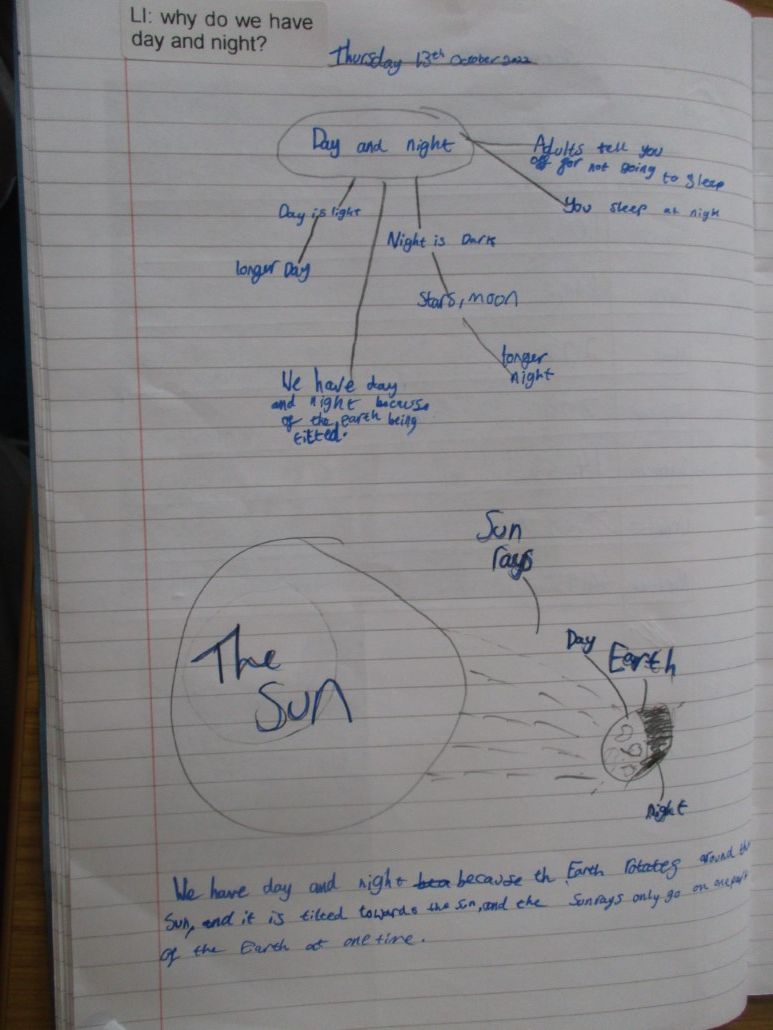 LI: why do we have
day and night?
Thursday 13th October 2022
Day and night
Adults tell you
off for not going to sleep
You sleep at nigh
Day is light
longer Day
Night is Dark
Stars, moon
longer
night
We have day
and night because
of the earth being
tilted.
Sun
rays
The
Sun
Day
Earth
night
We have day and night bea because th Earth rotates around the
Sun, and it is tilted towards the sun, and the Sunrays only go on one part
of the Earth at one time.